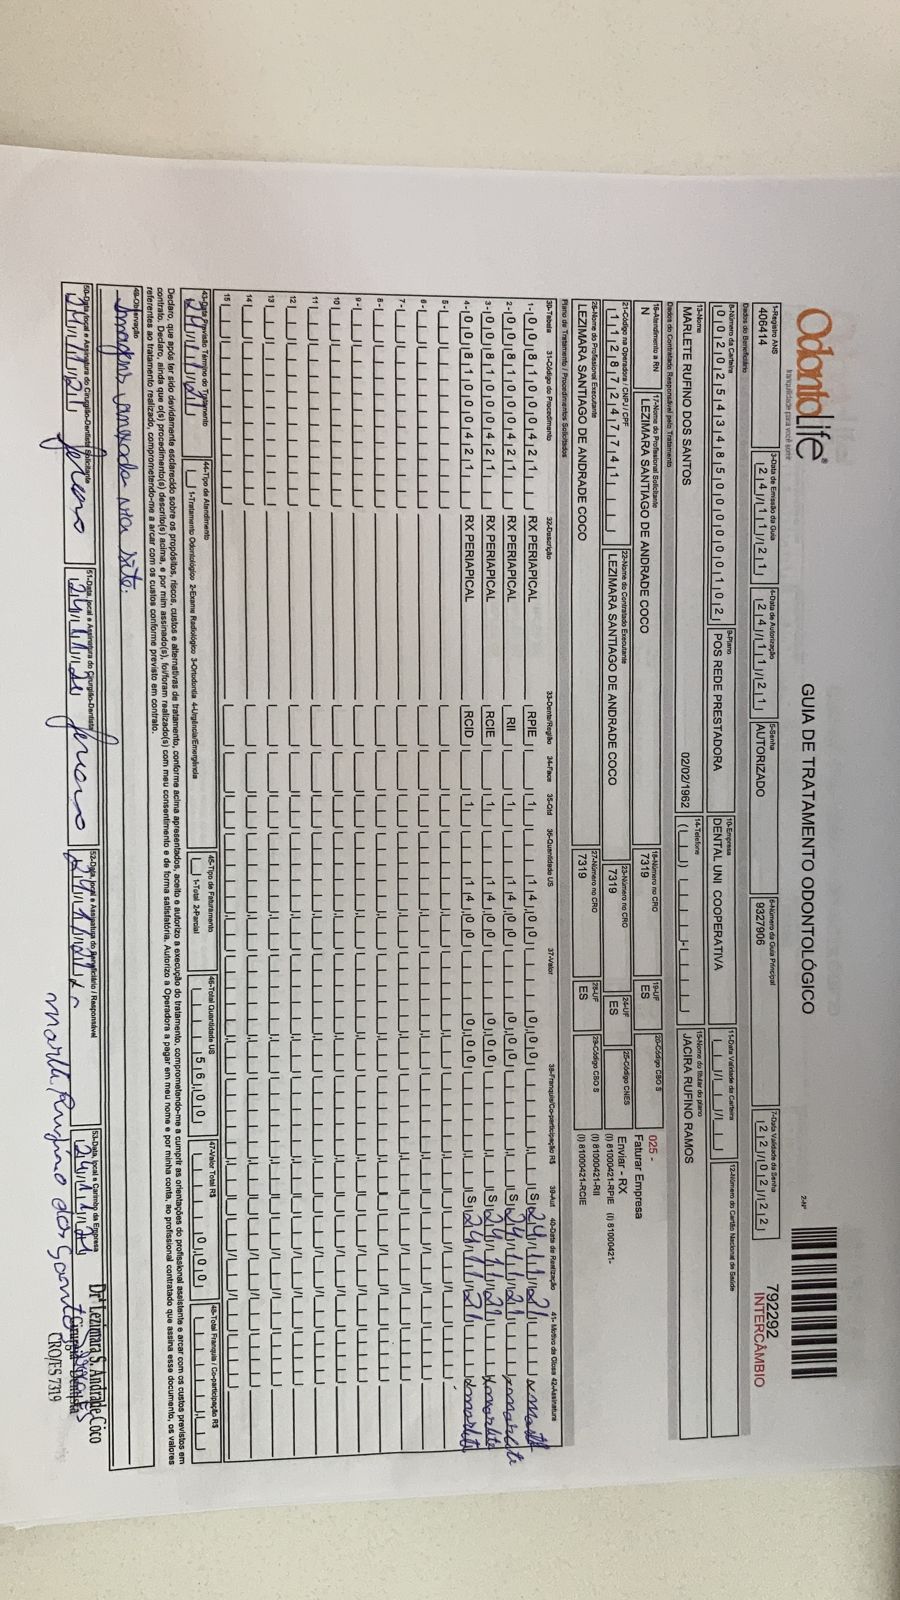 OdontoLife®
tranquilidade para você sorrir
GUIA DE TRATAMENTO ODONTOLÓGICO
2-Nº
792292
INTERCÂMBIO
1-Registro ANS
406414
3-Data de Emissão da Guia
24/11/21
4-Data de Autorização
24/11/21
5-Senha
AUTORIZADO
6-Número da Guia Principal
9327906
7-Data Validade da Senha
22/02/22
Dados do Beneficiário
8-Número da Carteira
00202543485000000102
9-Plano
POS REDE PRESTADORA
10-Empresa
DENTAL UNI COOPERATIVA
11-Data Validade da Carteira
12-Número do Cartão Nacional de Saúde
13-Nome
MARLETE RUFINO DOS SANTOS
02/02/1962
14-Telefone
15-Nome do titular do plano
JACIRA RUFINO RAMOS
Dados do Contratado Responsável pelo Tratamento
16-Atendimento a RN
N
17-Nome do Profissional Solicitante
LEZIMARA SANTIAGO DE ANDRADE COCO
18-Número no CRO
7319
19-UF
ES
20-Código CBO S
025 -
Faturar Empresa
21-Código na Operadora / CNPJ / CPF
11287247741
22-Nome do Contratado Executante
LEZIMARA SANTIAGO DE ANDRADE COCO
23-Número no CRO
7319
24-UF
ES
25-Código CNES
Enviar - RX
(I) 81000421-RPIE (I) 81000421-
26-Nome do Profissional Executante
LEZIMARA SANTIAGO DE ANDRADE COCO
27-Número no CRO
7319
28-UF
ES
29-Código CBO S
(I) 81000421-RII
(I) 81000421-RCIE
Plano de Tratamento / Procedimentos Solicitados
30-Tabela 31-Código do Procedimento 32-Descrição 33-Dente/Região 34-Face 35-Qtd 36-Quantidade US 37-Valor 38-Franquia/Co-participação R$ 39-Aut 40-Data de Realização 41-Motivo da Glosa 42-Assinatura
1- 00 81000421 RX PERIAPICAL RPIE 1 14,00 0,00 S 24/11/21
2- 00 81000421 RX PERIAPICAL RII 1 14,00 0,00 S 24/11/21 x marlete
3- 00 81000421 RX PERIAPICAL RCIE 1 14,00 0,00 S 24/11/21 x marlete
4- 00 81000421 RX PERIAPICAL RCID 1 14,00 0,00 S 24/11/21 x marlete
5-
6-
7-
8-
9-
10
11
12
13
14
15
43-Data Previsão Término do Tratamento
24/11/21
44-Tipo de Atendimento
1-Tratamento Odontológico 2-Exame Radiológico 3-Ortodontia 4-Urgência/Emergência
45-Tipo de Faturamento
1-Total 2-Parcial
46-Total Quantidade US
56,00
47-Valor Total R$
0,00
48-Total Franquia / Co-participação R$
Declaro, que após ter sido devidamente esclarecido sobre os propósitos, riscos, custos e alternativas de tratamento, conforme acima apresentados, aceito e autorizo a execução do tratamento, comprometendo-me a cumprir as orientações do profissional assistente e arcar com os custos previstos em
contrato. Declaro, ainda que o(s) procedimento(s) descrito(s) acima, e por mim assinado(s), foi/foram realizado(s) com meu consentimento e de forma satisfatória. Autorizo a Operadora a pagar em meu nome e por minha conta, ao profissional contratado que assina esse documento, os valores
referentes ao tratamento realizado, comprometendo-me a arcar com os custos conforme previsto em contrato.
49-Observação
Imagens anexada no site.
50-Data, local e Assinatura do Cirurgião-Dentista Solicitante
24/11/21
51-Data, local e Assinatura do Cirurgião-Dentista
24/11/21
52-Data, local e Assinatura do Beneficiário / Responsável
24/11/21 x
Marlete Rufino dos Santos
53-Data, local e Carimbo da Empresa
24/11/21
Drª Lezimara S. Andrade Coco
Cirurgiã-Dentista
CRO/ES 7319